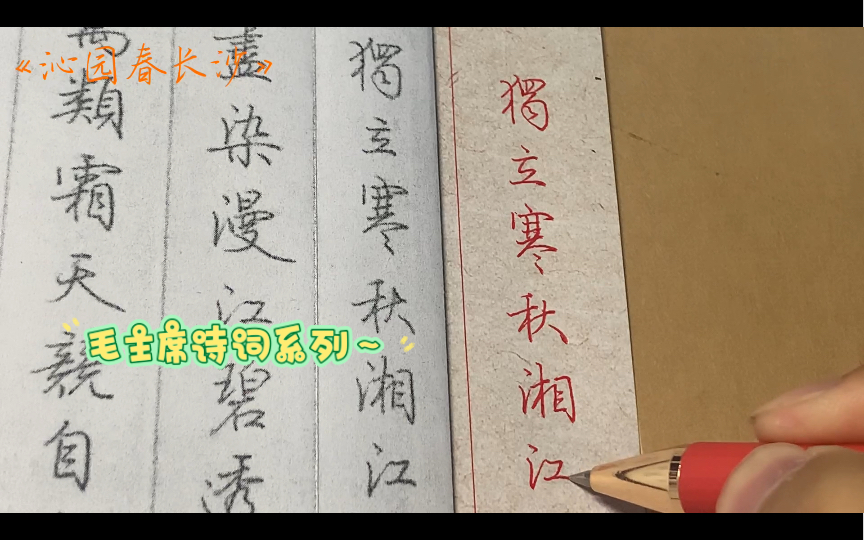 《沁园春长沙》
獨立寒秋湘江
獨立寒秋湘江
盡染漫江碧透
萬類霜天競自
毛主席诗词系列~